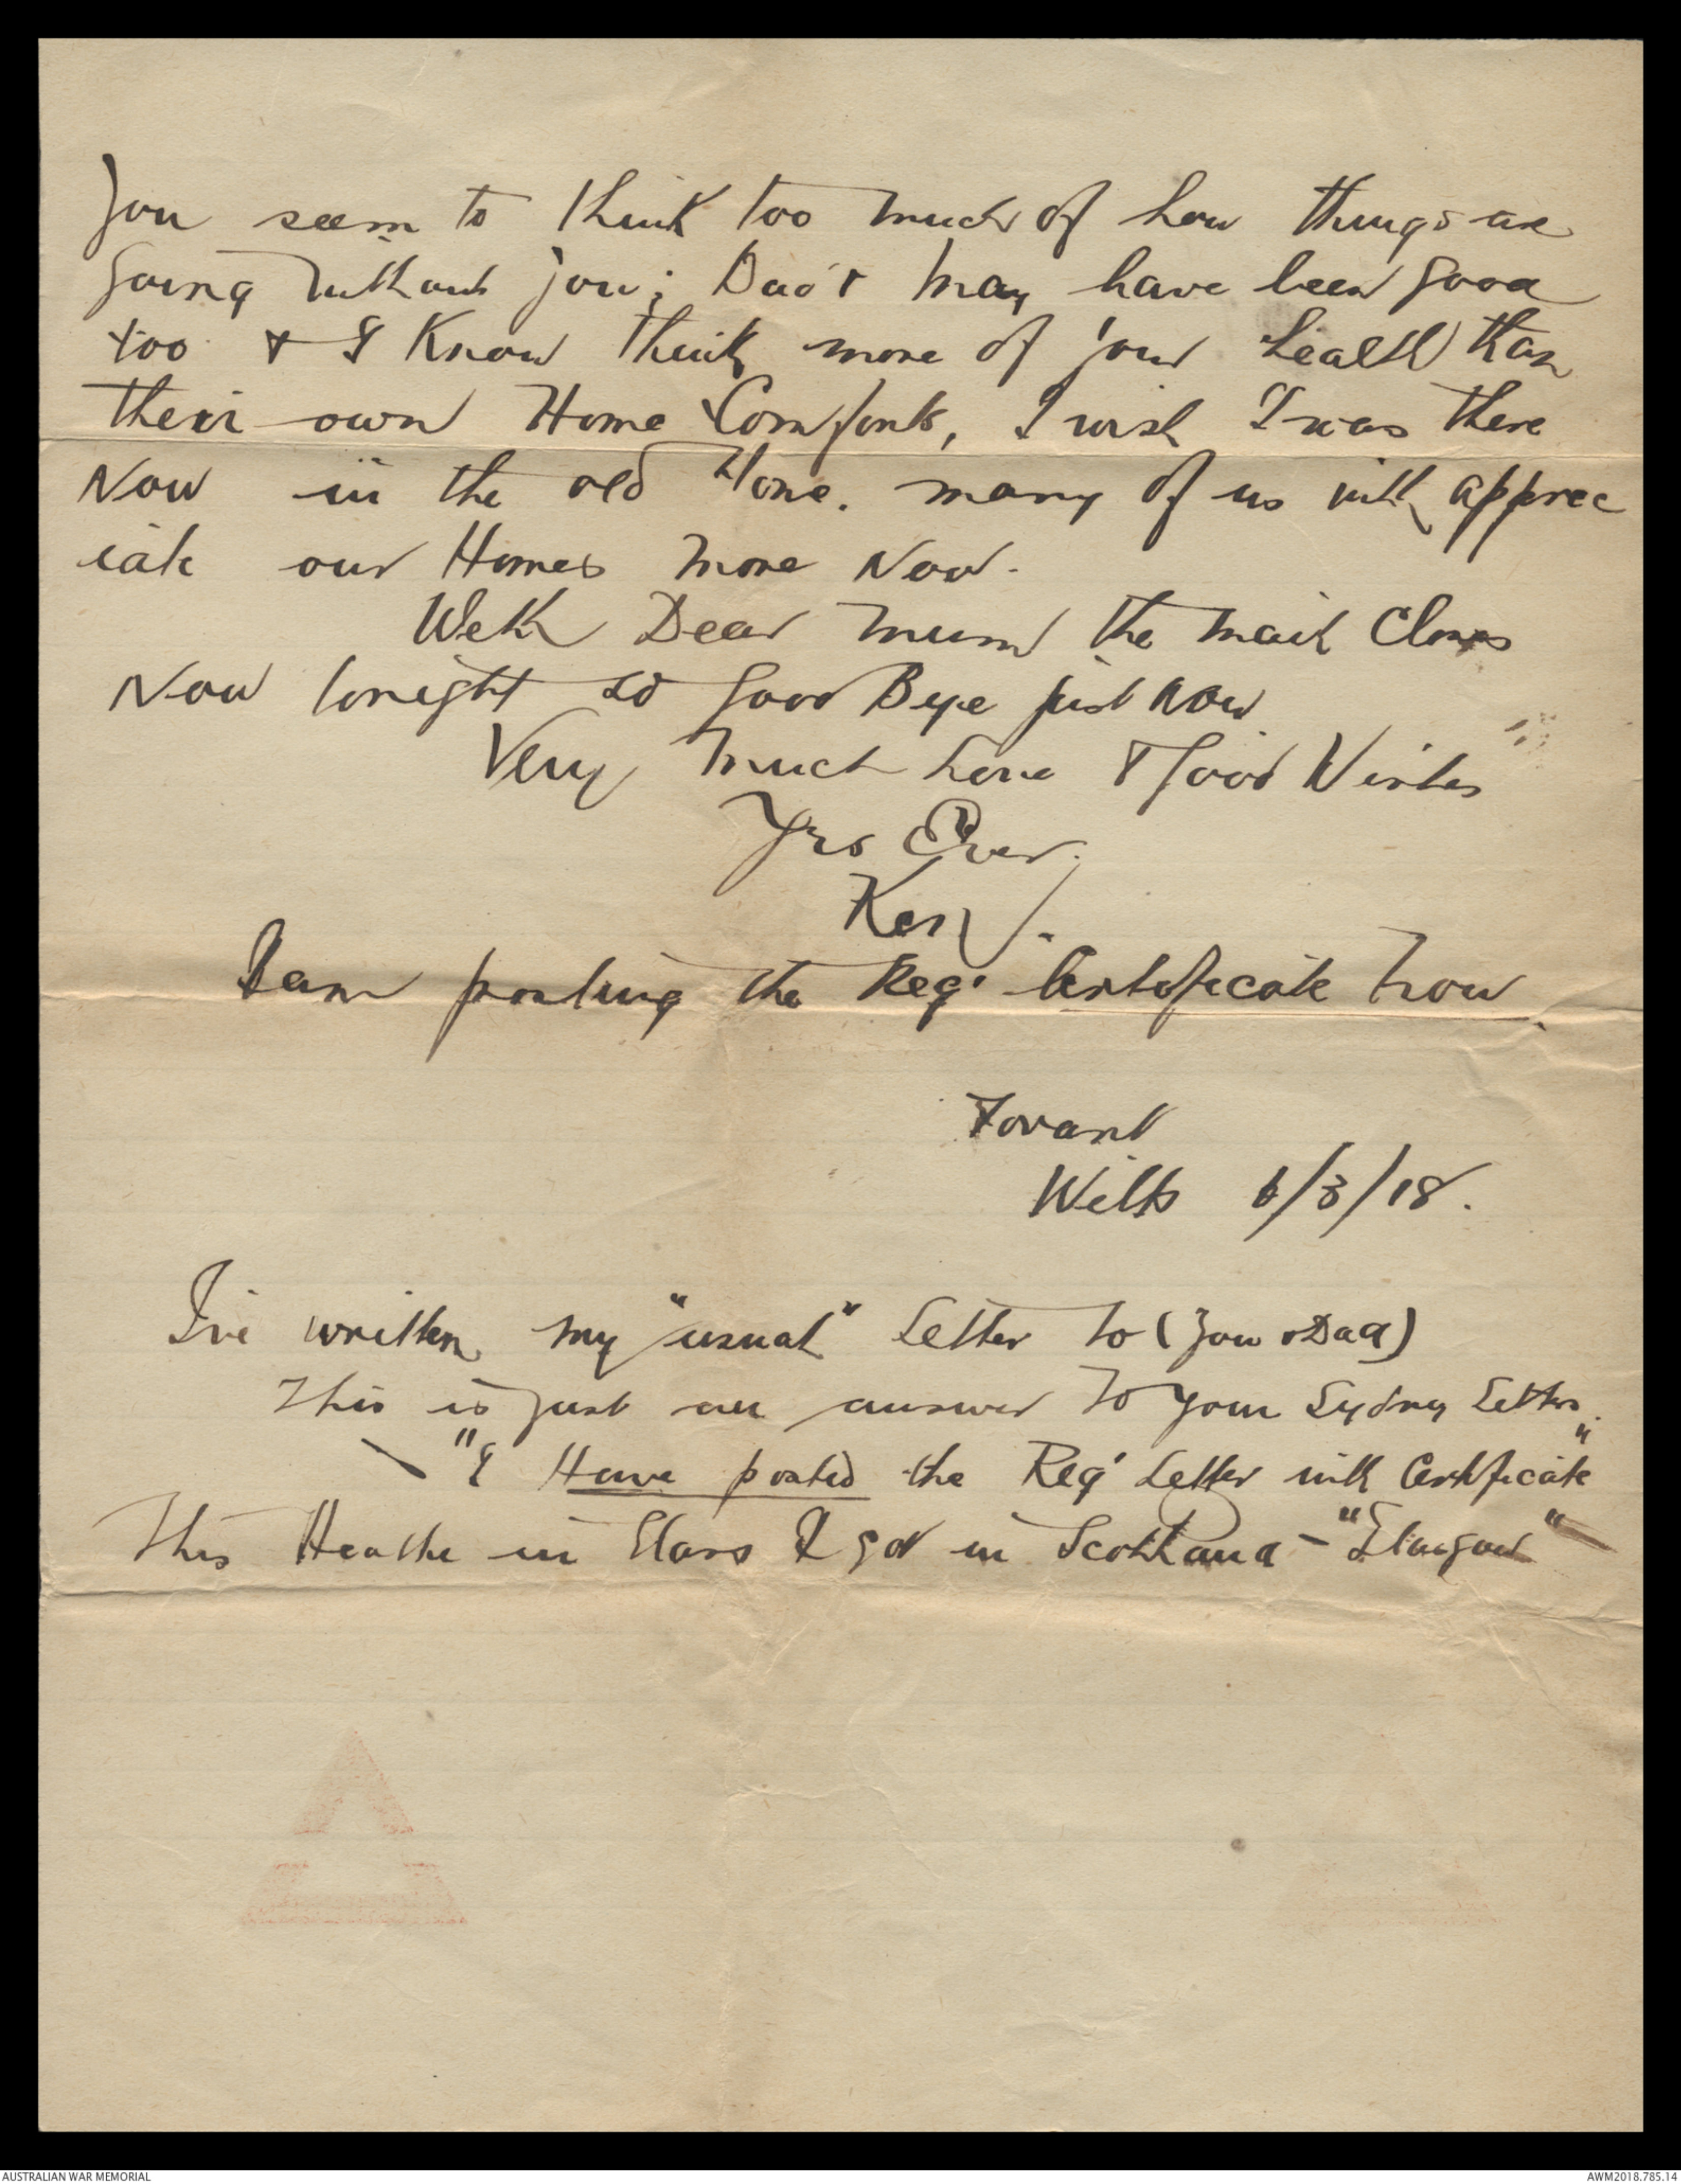 You seem to think too much of how things are
going without you; Dad & May have been good
too & I Know think more of your health than
their own Home Comforts, I wish I was there
Now in the old Home. many of us will apprec
iate our Homes more Now.
Well Dear Mum the mail Closes
Now tonight so Good Bye just now
Very much Love & Good Wishes
Yrs Ever.
Ken.
I am posting the Reg' Certificate now.
Fovant
Wilts 6/3/18.
I've written my "usual" Letter to (you & Dad)
This is just an answer to your Sydney Letter.
"I Have posted the Reg' Letter with Certificate"
This Heather in Glass I got in Scotland - "Glasgow"
AUSTRALIAN WAR MEMORIAL
AWM2018.785.14